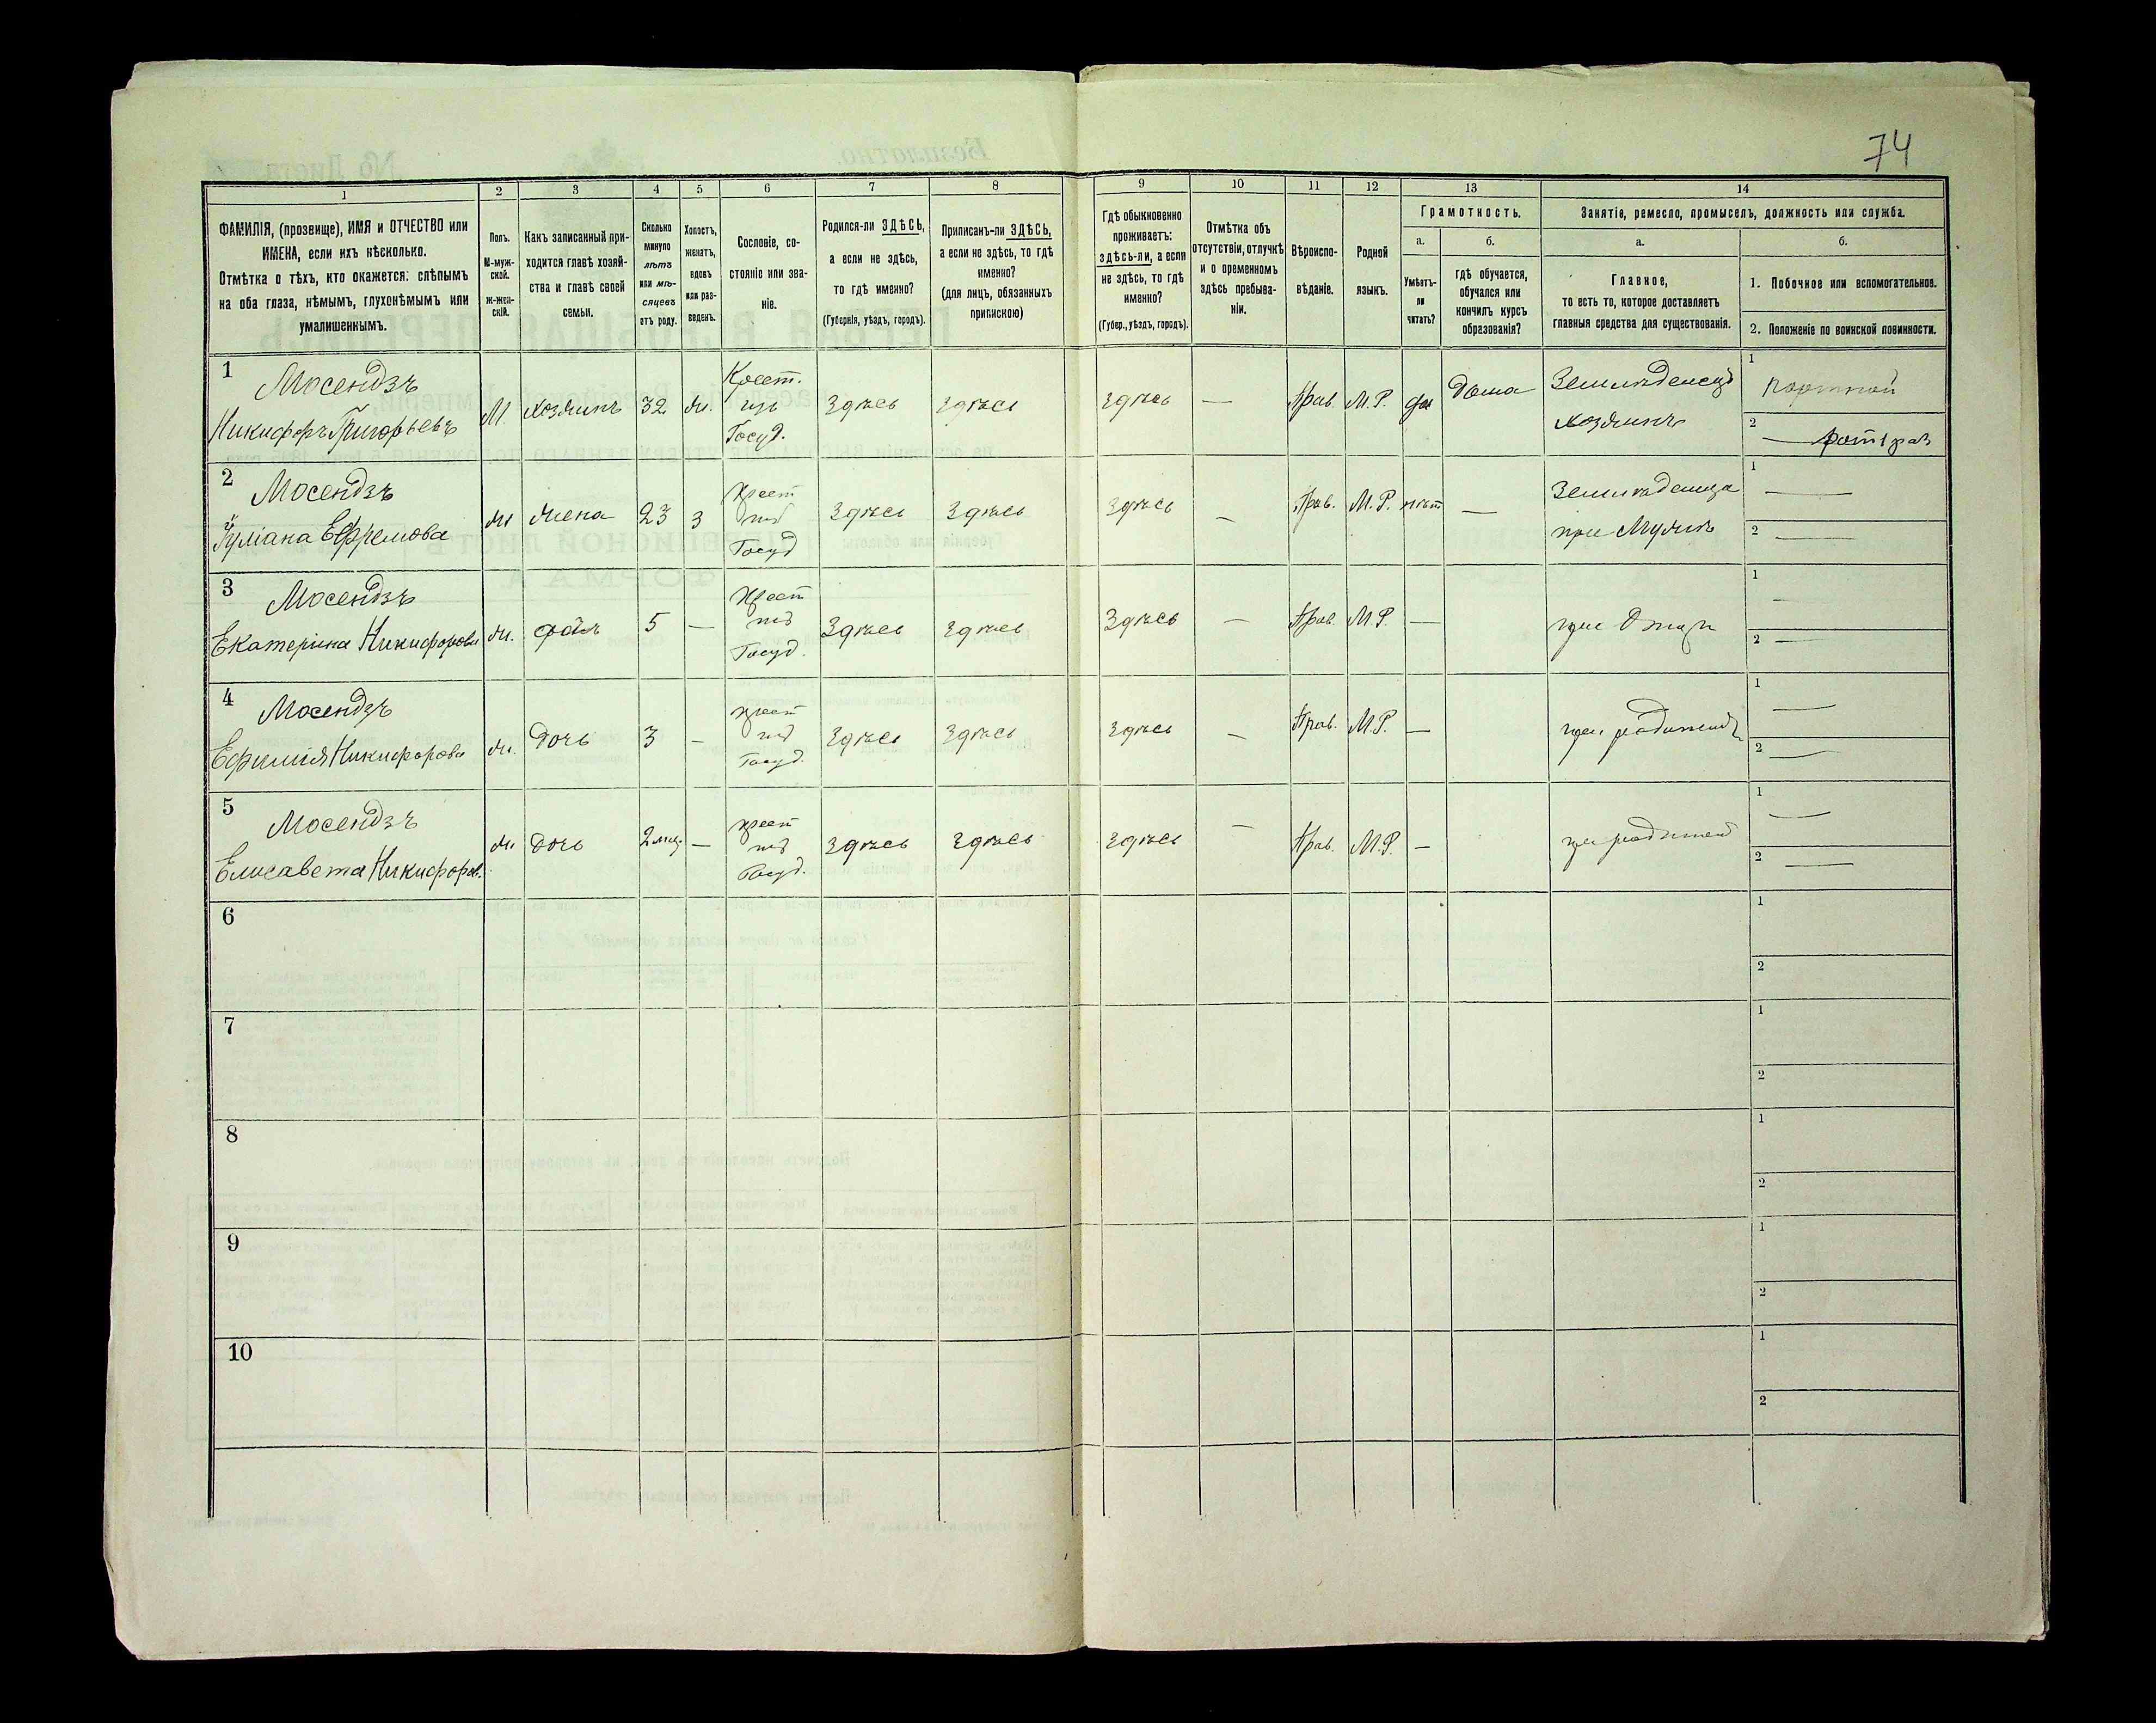 74
1 2 3 4 5 6 7 8 9 10 11 12 13 14
ФАМИЛІЯ, (прозвище), ИМЯ и ОТЧЕСТВО или
ИМЕНА, если ихъ нѣсколько.
Отмѣтка о тѣхъ, кто окажется: слѣпымъ
на оба глаза, нѣмымъ, глухонѣмымъ или
умалишеннымъ.
Полъ.
М-муж-
ской.
ж-жен-
скій.
Какъ записанный при-
ходится главѣ хозяй-
ства и главѣ своей
семьи.
Сколько
минуло
лѣтъ
или мѣ-
сяцевъ
отъ роду.
Холостъ,
женатъ,
вдовъ
или раз-
веденъ.
Сословіе, со-
стояніе или зва-
ніе.
Родился-ли ЗДѢСЬ,
а если не здѣсь,
то гдѣ именно?
(Губернія, уѣздъ, городъ).
Приписанъ-ли ЗДѢСЬ,
а если не здѣсь, то гдѣ
именно?
(для лицъ, обязанныхъ
припискою)
Гдѣ обыкновенно
проживаетъ:
здѣсь-ли, а если
не здѣсь, то гдѣ
именно?
(Губер., уѣздъ, городъ).
Отмѣтка объ
отсутствіи, отлучкѣ
и о временномъ
здѣсь пребыва-
ніи.
Вѣроиспо-
вѣданіе.
Родной
языкъ.
Грамотность.
а.
Умѣетъ-
ли
читать?
б.
гдѣ обучается,
обучался или
кончилъ курсъ
образованія?
Занятіе, ремесло, промыселъ, должность или служба.
а.
Главное,
то есть то, которое доставляетъ
главныя средства для существованія.
б.
1. Побочное или вспомогательное.
2. Положеніе по воинской повинности.
1 Мосендзъ
Никифоръ Григорьевъ
М. хозяинъ 32 ж.
Крест.
изъ
Госуд.
Здѣсь Здѣсь Здѣсь — Прав. М.Р. да Дома
Земледелецъ
хозяинъ
1 портной
2 —
2 Мосендзъ
Іуліана Ефремова
ж жена 23 з
Крест
изъ
Госуд
Здѣсь Здѣсь Здѣсь — Прав. М.Р. нѣт —
при Мужѣ
1 —
2 —
3 Мосендзъ
Екатерина Никифорова
ж. 5 —
Крест
изъ
Госуд.
Здѣсь Здѣсь Здѣсь — Прав. М.Р. —
при
1 —
2 —
4 Мосендзъ
Ефимія Никифорова
ж. дочь 3 —
крест
изъ
Госуд.
Здѣсь Здѣсь Здѣсь — Прав. М.Р. —
при
1 —
2 —
5 Мосендзъ
Елисавета Никифоров.
ж дочь 2 мѣс. —
крест
изъ
Госуд.
Здѣсь Здѣсь Здѣсь — Прав. М.Р. —
при
1 —
2 —
6
1
2
7
1
2
8
1
2
9
1
2
10
1
2